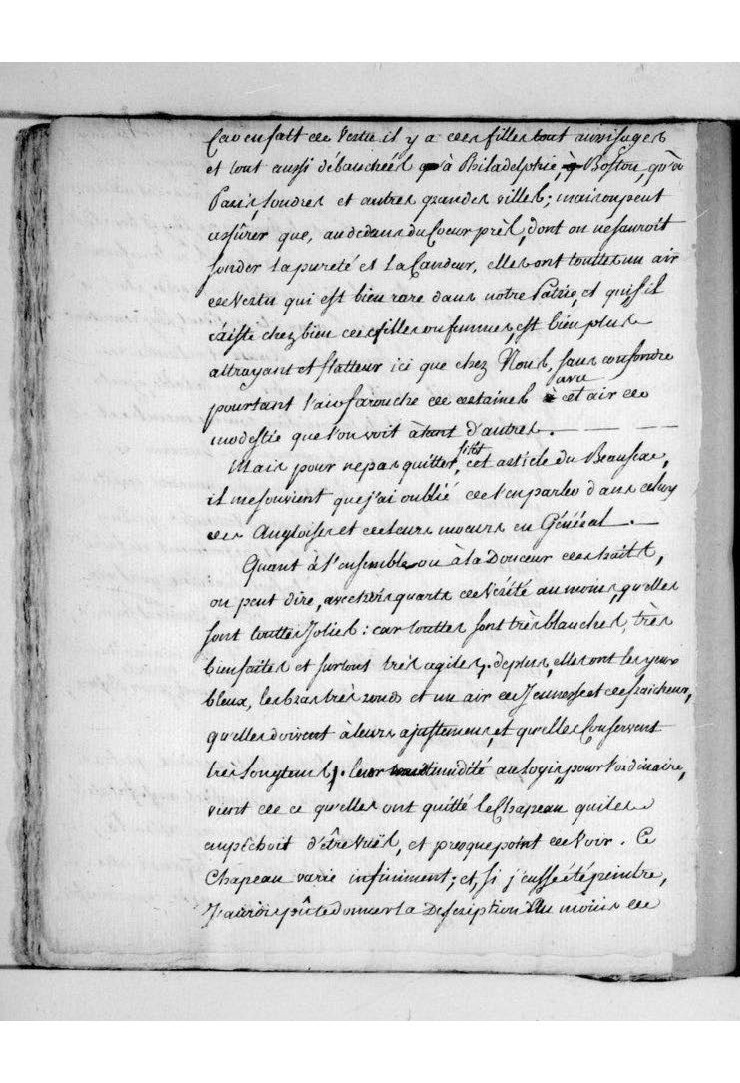 Car en fait de Vertu il y a des filles tout aussi sages
et tout aussi débauchées qu'à Philadelphie, à Boston, qu'à
Paris, Londres et autres grandes villes; mais on peut
assûrer que, au dedans du Coeur près, dont on ne sauroit
sonder la pureté et la Candeur, elles ont touttes un air
de Vertu qui est bien rare dans notre Patrie, et qui, s'il
éxiste chez bien des filles ou femmes, est bien plus
attrayant et flatteur ici que chez Nous, sans confondre
pourtant l'air farouche de certaines avec cet air de
modestie que l'on voit à tant d'autres. — — —
Mais pour ne pas quitter sitôt cet article du Beau sexe,
il me souvient que j'ai oublié de t'en parler dans celuy
des Angloises et de leurs moeurs en Général. —
Quant à l'ensemble ou à la Douceur des traits,
on peut dire, avec trois quarts de Vérité au moins, qu'elles
sont touttes Jolies: car touttes sont très blanches, très
bien faites et surtout très agiles; de plus, elles ont les yeux
bleux, les bras très ronds et un air de Jeunesse et de fraicheur,
qu'elles doivent à leurs ajustemens, et qu'elles Conservent
très longtems. leur nudité au logis, pour l'ordinaire,
vient de ce qu'elles ont quitté le Chapeau qui les
empêchoit d'être Vuës, et presque point de Voir. Ce
Chapeau varie infiniment; et, si j'eusse été peintre,
J'aurois pû te donner la Description au moins de